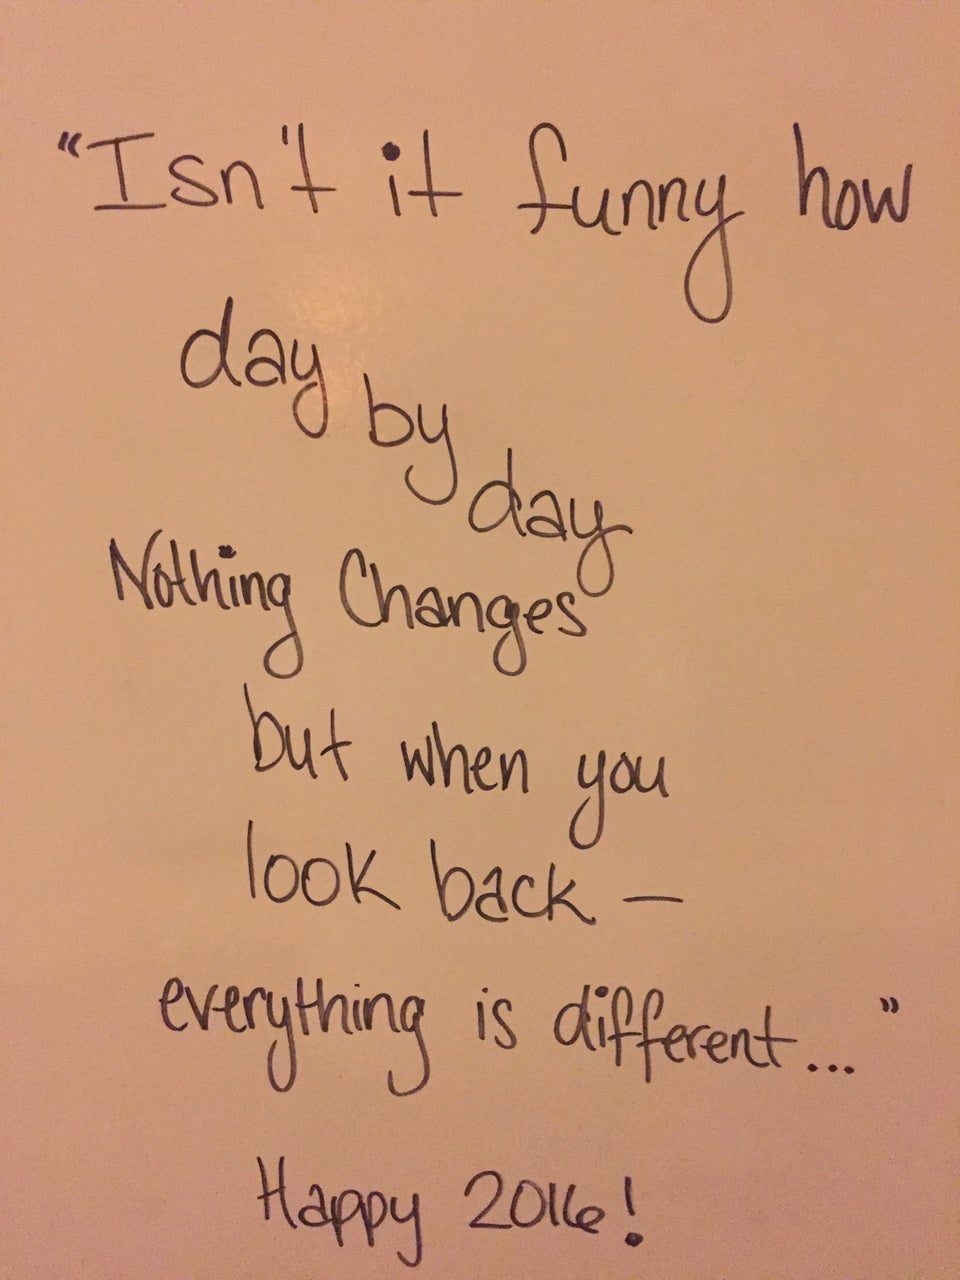 "Isn't it funny how
day by day
Nothing Changes
but when you
look back —
everything is different..."
Happy 2016!